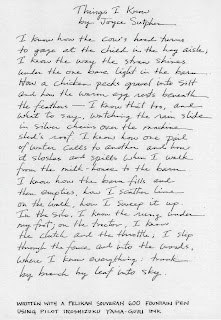 Things I Know
by Joyce Sutphen
I know how the cow's head turns
to gaze at the child in the hay aisle;
I know the way the straw shines
under the one bare light in the barn.
How a chicken pecks gravel into silt
and how the warm egg rests beneath
the feathers — I know that too, and
what to say, watching the rain slide
in silver chains over the machine
shed's roof. I know how one pail
of water calls to another and how
it sloshes and spills when I walk
from the milk-house to the barn.
I know how the barn fills and
then empties, how I scatter lime
on the walk, how I sweep it up.
In the silo, I know the rung under
my foot; on the tractor, I know
the clutch and the throttle; I slip
through the fence and into the woods,
where I know everything: trunk
by branch by leaf into sky.
WRITTEN WITH A PELIKAN SOUVERAN 600 FOUNTAIN PEN
USING PILOT IROSHIZUKU YAMA-GURI INK